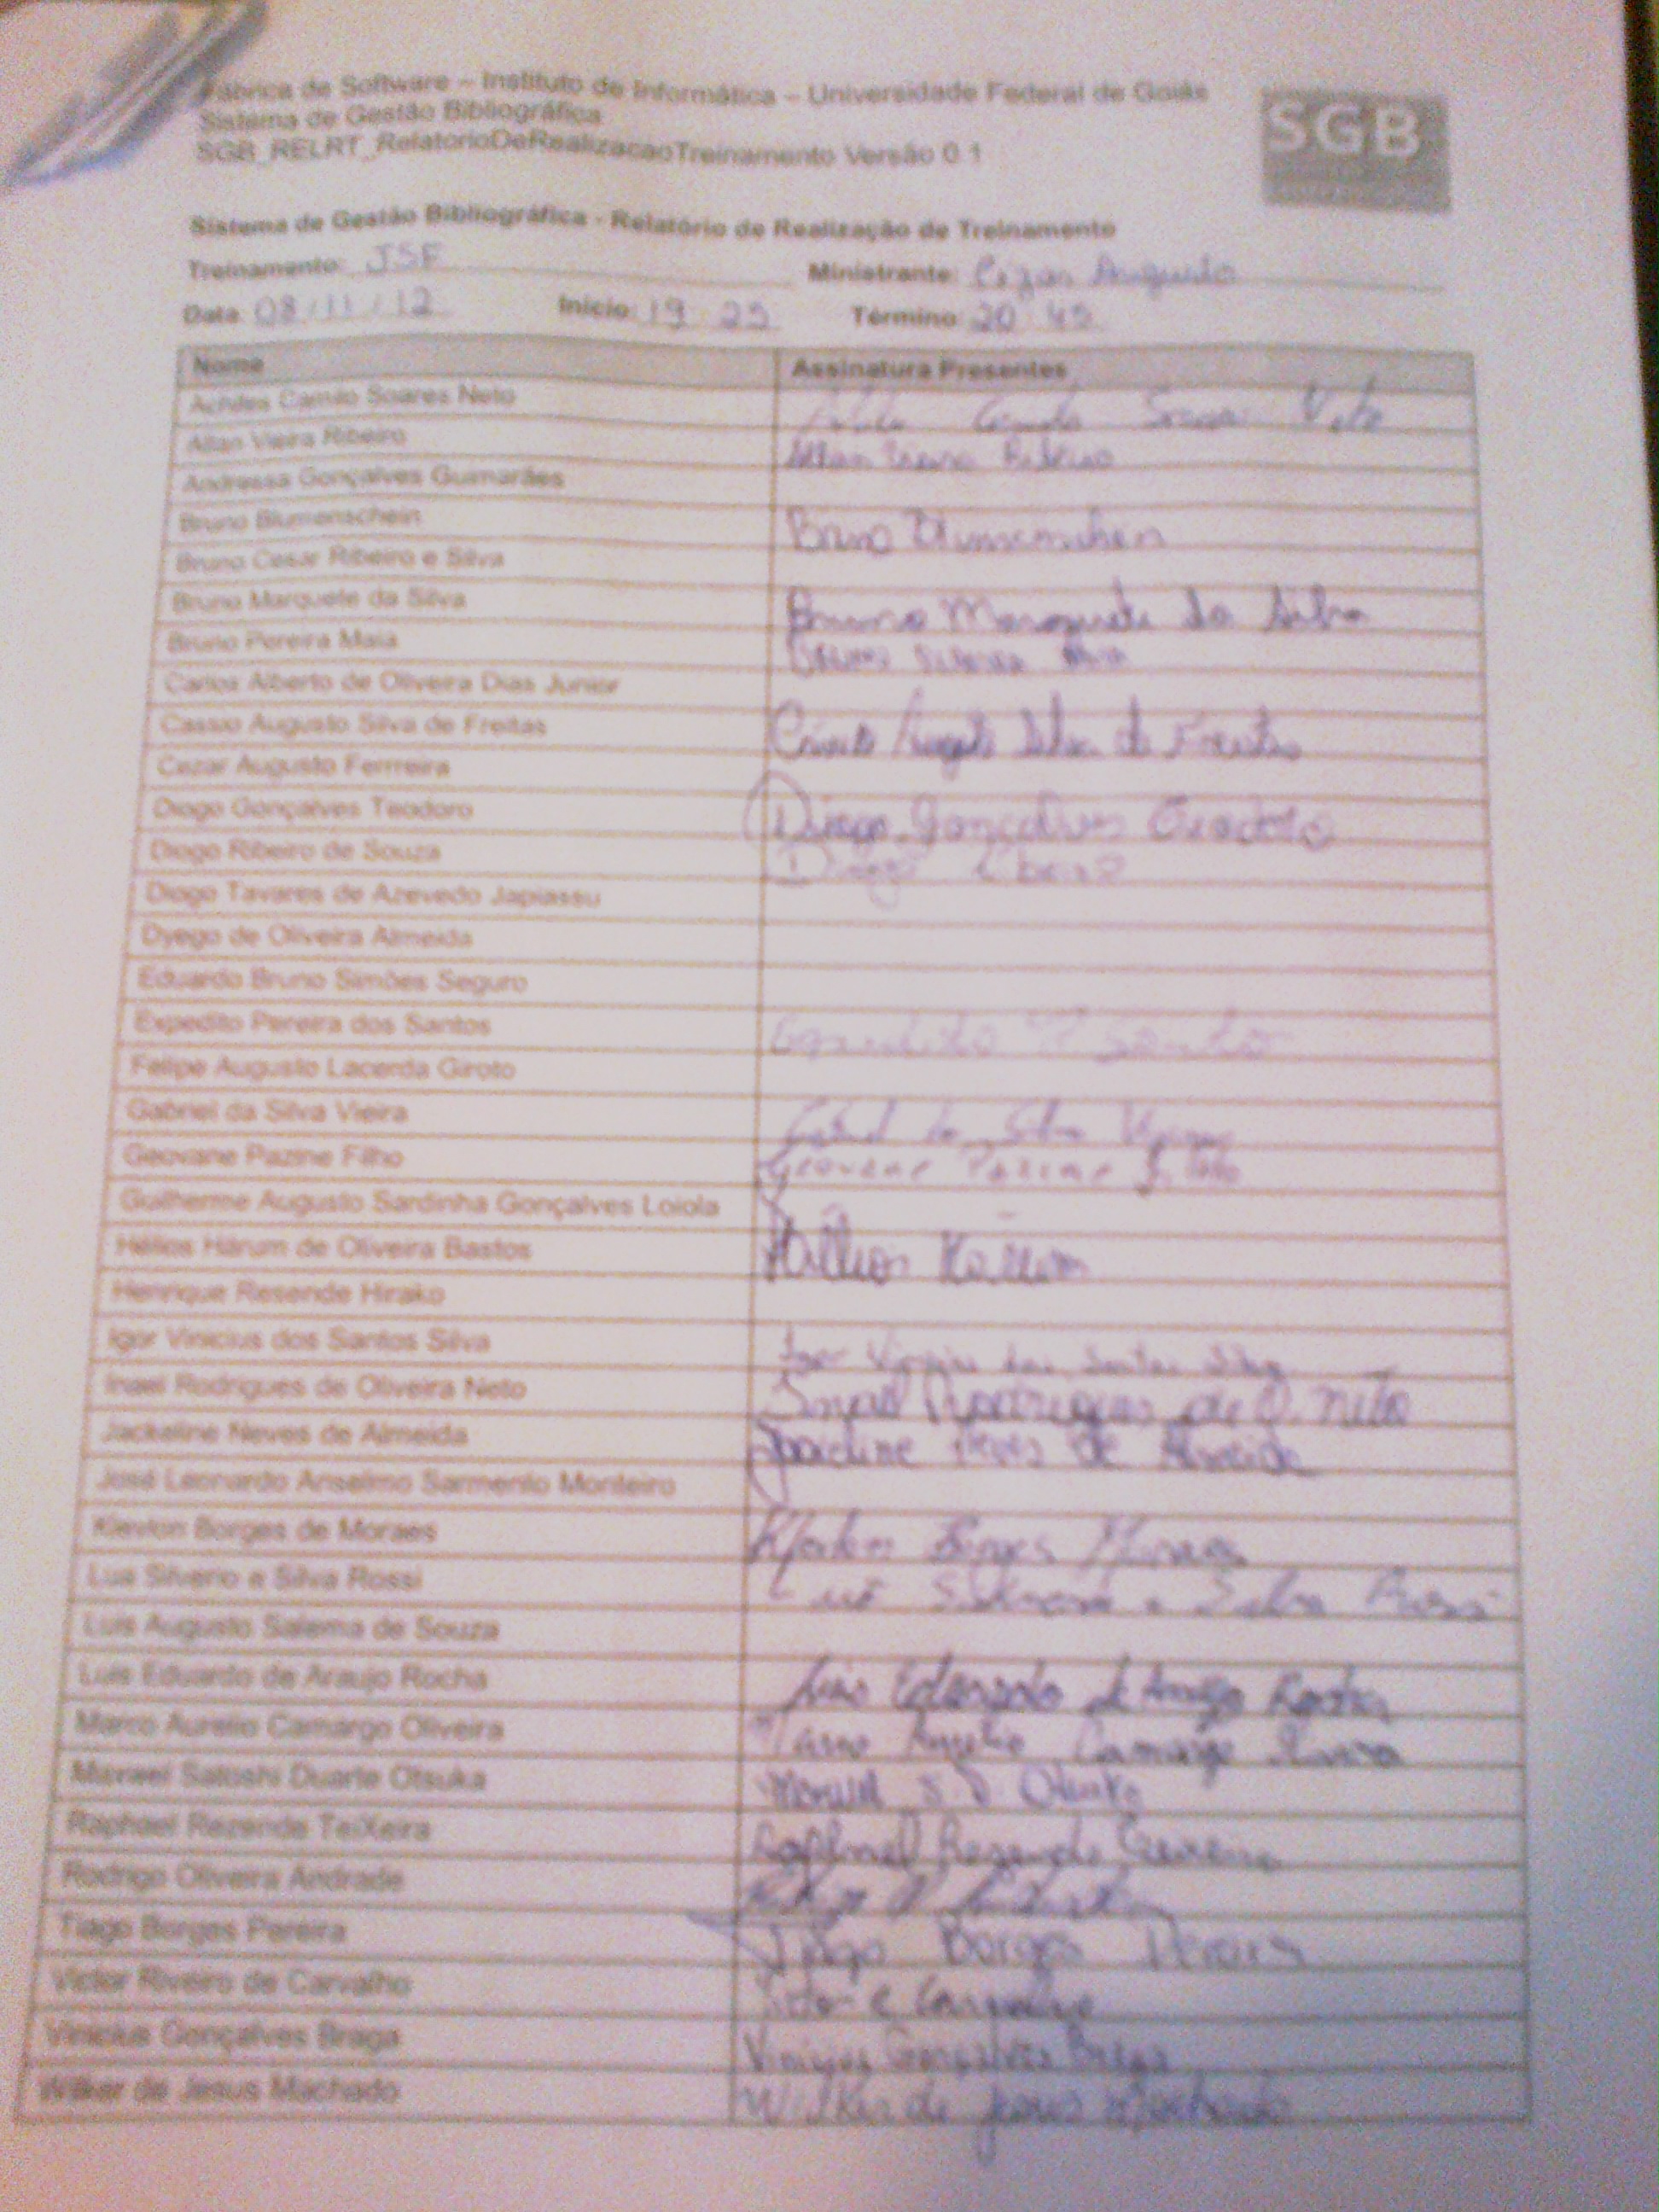 Fábrica de Software – Instituto de Informática – Universidade Federal de Goiás
Sistema de Gestão Bibliográfica
SGB_RELRT_RelatorioDeRealizacaoTreinamento Versão 0.1
SGB
Sistema de Gestão Bibliográfica - Relatório de Realização de Treinamento
Treinamento: JSF Ministrante: Cezar Augusto
Data: 08/11/12 Início: 19:25 Término: 20:45
Nome Assinatura Presentes
Achiles Camilo Soares Neto Camilo Soares Neto
Allan Vieira Ribeiro Allan Vieira Ribeiro
Andressa Gonçalves Guimarães
Bruno Blumenschein Bruno Blumenschein
Bruno Cesar Ribeiro e Silva
Bruno Marquete da Silva Bruno Marquete da Silva
Bruno Pereira Maia Bruno Pereira Maia
Carlos Alberto de Oliveira Dias Junior
Cassio Augusto Silva de Freitas Cássio Augusto Silva de Freitas
Cezar Augusto Ferrreira
Diogo Gonçalves Teodoro Diogo Gonçalves Teodoro
Diogo Ribeiro de Souza Diogo
Diogo Tavares de Azevedo Japiassu
Dyego de Oliveira Almeida
Eduardo Bruno Simões Seguro
Expedito Pereira dos Santos Expedito P Santos
Felipe Augusto Lacerda Giroto
Gabriel da Silva Vieira Gabriel da Silva Vieira
Geovane Pazine Filho Geovane Pazine Filho
Guilherme Augusto Sardinha Gonçalves Loiola
Hélios Hárum de Oliveira Bastos Hélios Hárum
Henrique Resende Hirako
Igor Vinicius dos Santos Silva Igor Vinicius dos Santos Silva
Inael Rodrigues de Oliveira Neto Inael Rodrigues de O. Neto
Jackeline Neves de Almeida Jackeline Neves de Almeida
José Leonardo Anselmo Sarmento Monteiro
Klevlon Borges de Moraes Borges Moraes
Lua Silverio e Silva Rossi Silverio e Silva Rossi
Luis Augusto Salema de Souza
Luis Eduardo de Araujo Rocha Luis Eduardo de Araujo Rocha
Marco Aurelio Camargo Oliveira Marco Aurelio Camargo Oliveira
Maxwel Satoshi Duarte Otsuka S. D. Otsuka
Raphael Rezende TeiXeira Raphael Rezende Teixeira
Rodrigo Oliveira Andrade Rodrigo O
Tiago Borges Pereira Tiago Borges Pereira
Victor Riveiro de Carvalho Carvalho
Vinicius Gonçalves Braga Vinicius Gonçalves Braga
Wilker de Jesus Machado Wilker de Jesus Machado